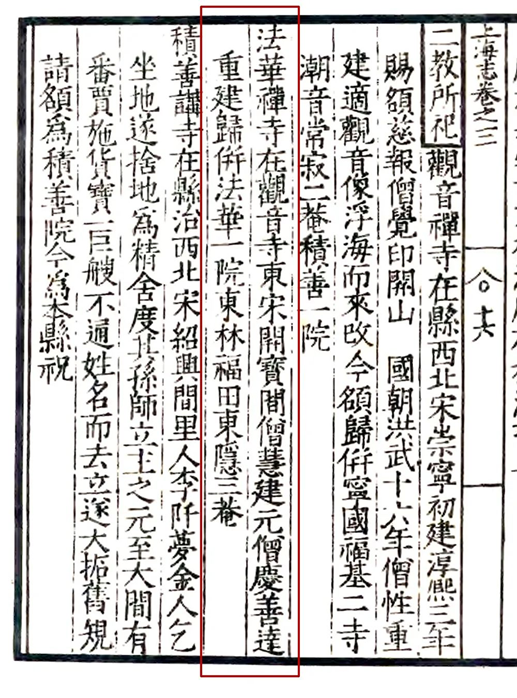 上海志卷之三
十六
二教所祀 觀音禪寺在縣西北宋崇寧初建淳熙三年
賜額慈報僧覺印開山 國朝洪武十六年僧性重
建適觀音像浮海而來改今額歸併寧國福基二寺
潮音常寂二菴積善一院
法華禪寺在觀音寺東宋開寶間僧慧建元僧慶善達
重建歸併法華一院東林福田東隱三菴
積善講寺在縣治西北宋紹興間里人李阡夢金人乞
坐地遂捨地爲精舍度其孫師立主之元至大間有
番賈施貨寶一巨艘不通姓名而去立遂大拓舊規
請額爲積善院今爲本縣祝